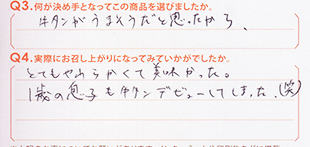 Q3.何が決め手となってこの商品を選びましたか。
牛タンがうまそうだと思ったから、
Q4.実際にお召し上がりになってみていかがでしたか。
とてもやわらかくて美味かった。
1歳の息子も牛タンデビューしてしまった。(笑)